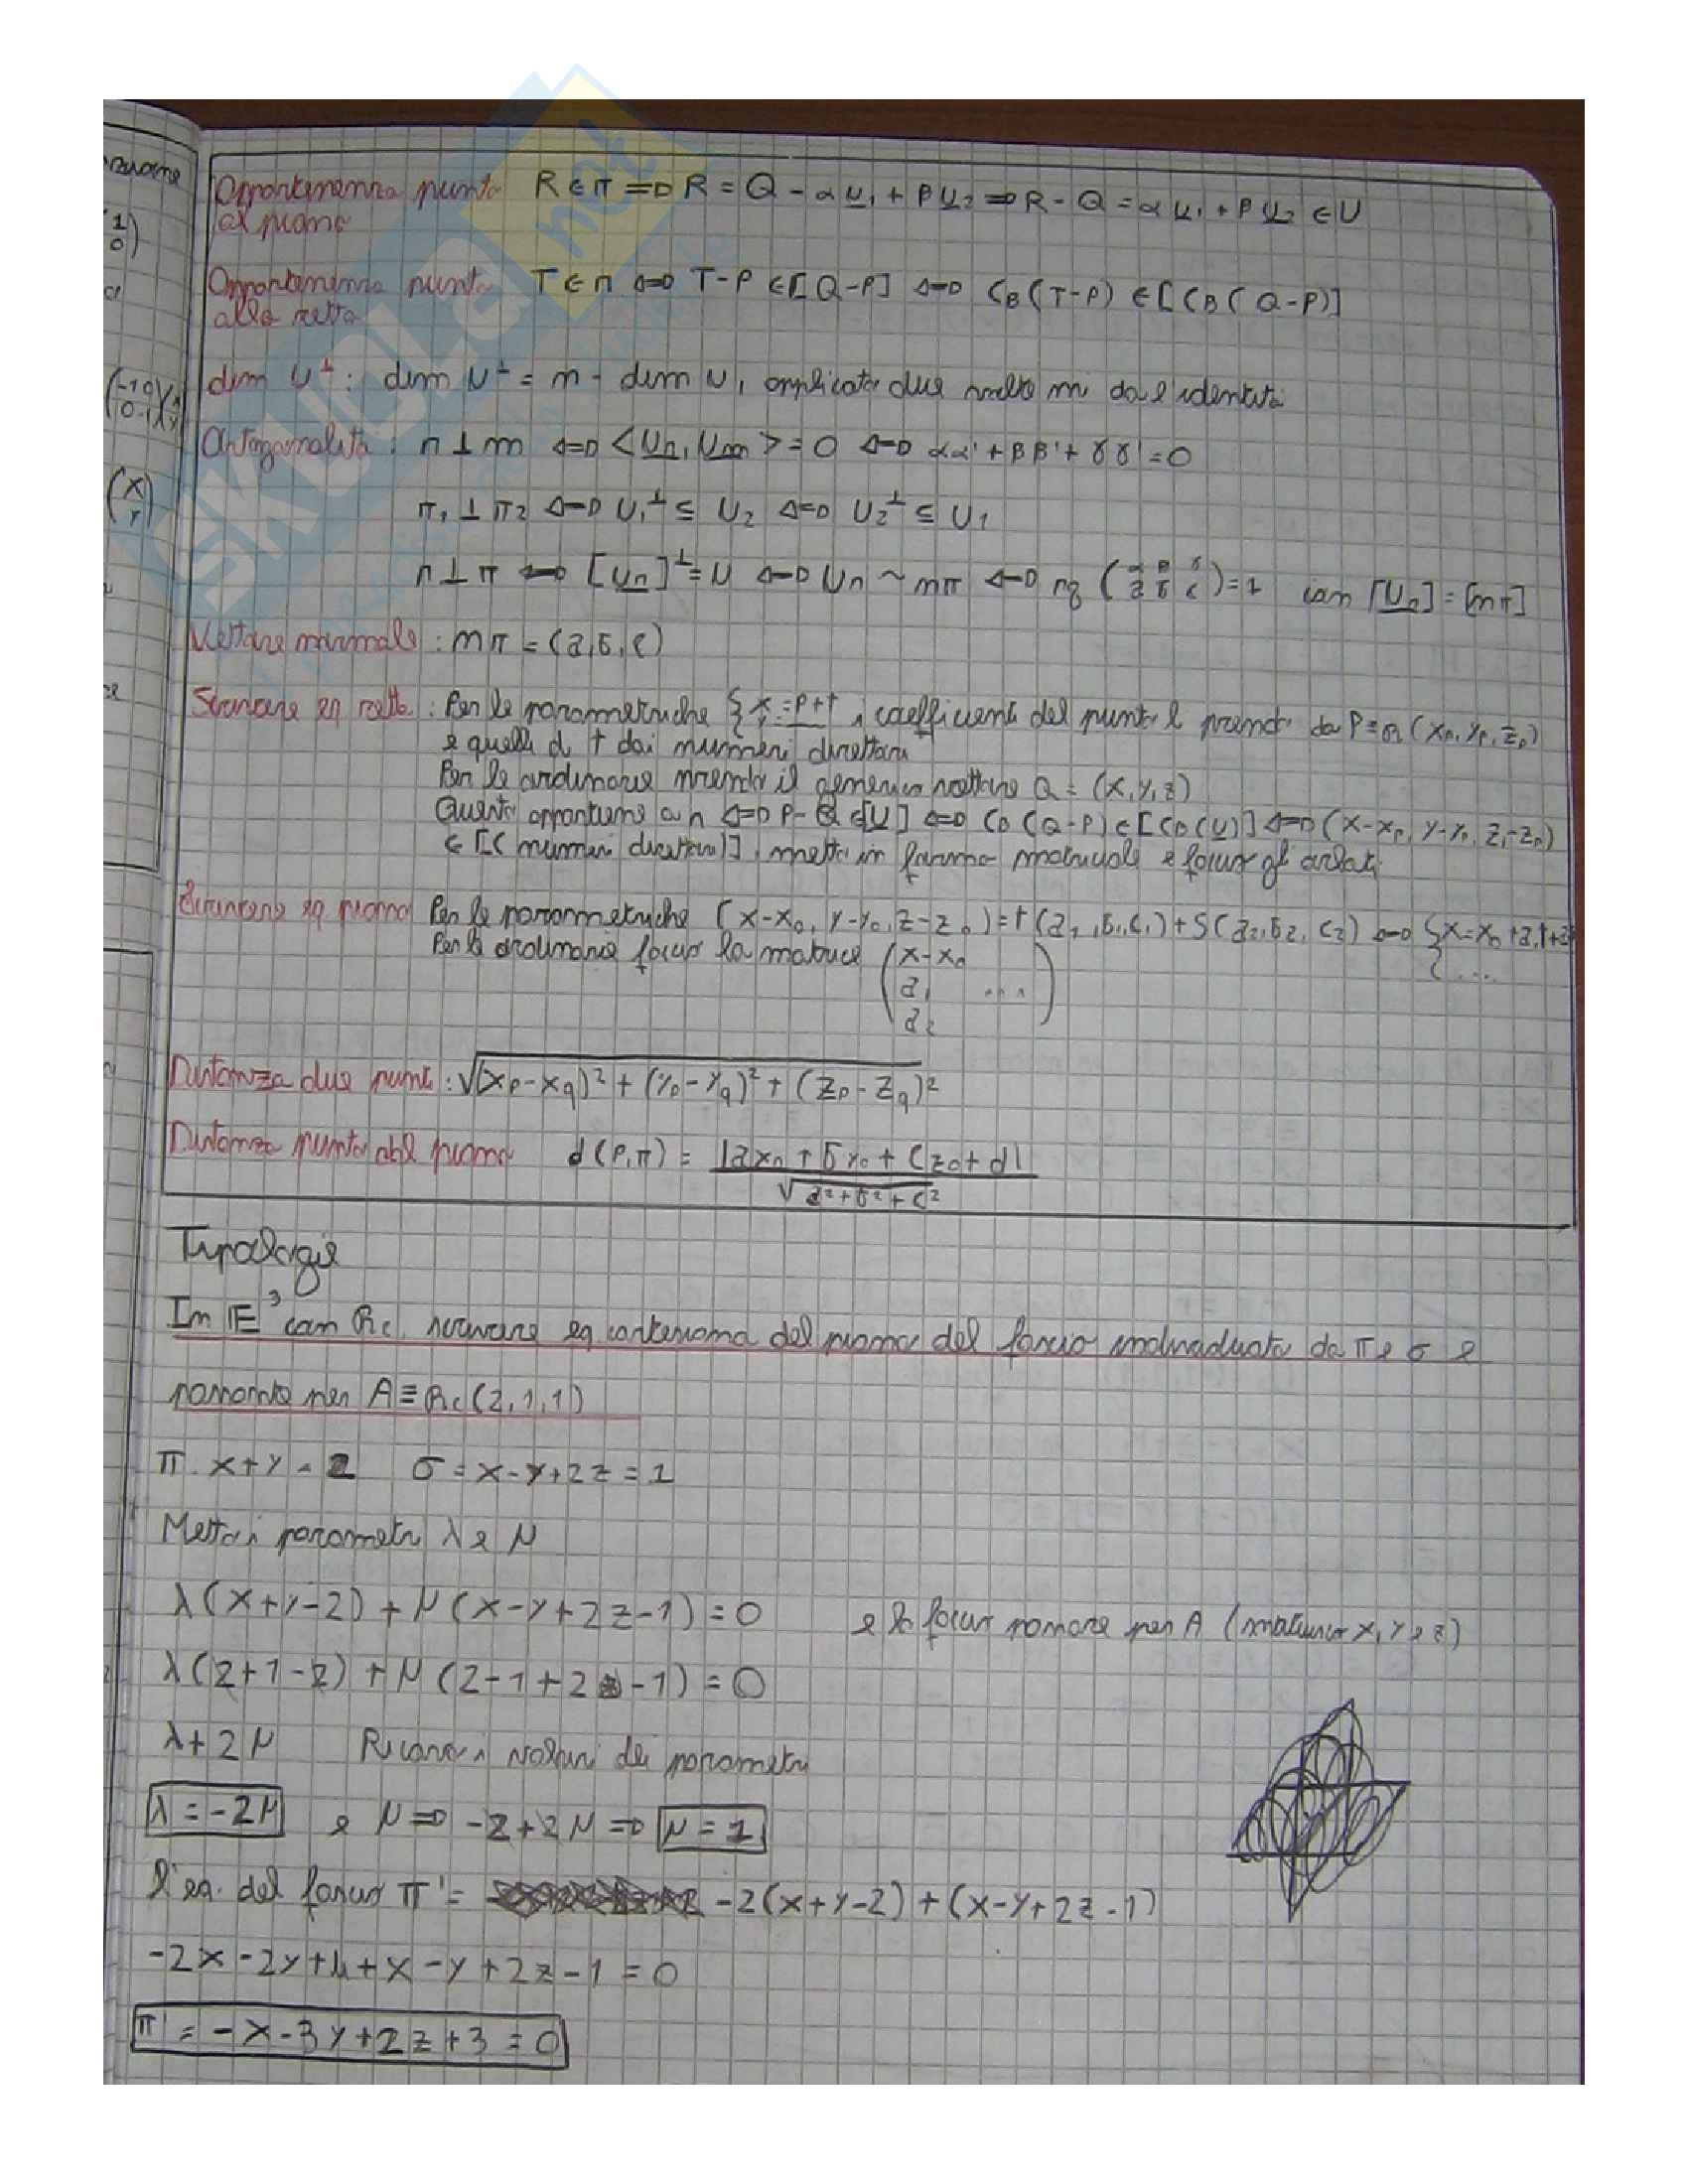 Appartenenza punto R ∈ π => R = Q - α u₁ + β u₂ => R - Q = α u₁ + β u₂ ∈ U
al piano
Appartenenza punto T ∈ r <=> T-P ∈ [Q-P] <=> C_B(T-P) ∈ [C_B(Q-P)]
alla retta
dim U⊥: dim U⊥ = n - dim U, applicata due volte mi dà l'identità
Ortogonalità: r ⊥ m <=> <U_r, U_m> = 0 <=> αα' + ββ' + γγ' = 0
π₁ ⊥ π₂ <=> U₁⊥ ⊆ U₂ <=> U₂⊥ ⊆ U₁
r ⊥ π <=> [U_r]⊥ = U <=> U_r ~ nπ <=> rg (α β γ / a b c) = 1 con [U_r] = [nπ]
Vettore normale: nπ = (a, b, c)
Scrivere eq retta: Per le parametriche { x = P + t, i coefficienti del punto li prendo da P ≡ R (x_P, y_P, z_P)
e quelli di t dai numeri direttori
Per le ordinarie prendo il generico vettore Q = (x, y, z)
Questo appartiene a r <=> P-Q ∈ [U] <=> C_B(Q-P) ∈ [C_B(U)] <=> (x-x_P, y-y_P, z-z_P)
∈ [( numeri direttori)], metto in forma matriciale e faccio gli orlati
Scrivere eq piano Per le parametriche (x-x₀, y-y₀, z-z₀) = t(a₁, b₁, c₁) + s(a₂, b₂, c₂) <=> { x = x₀ + a₁t + a
Per le ordinarie faccio la matrice ( x-x₀ { ...
a₁ ...
a₂ )
Distanza due punti: √(x_P - x_Q)² + (y_P - y_Q)² + (z_P - z_Q)²
Distanza punto dal piano d(P, π) = |ax₀ + by₀ + cz₀ + d|
√a² + b² + c²
Tipologie
In E³ con Rc scrivere eq cartesiana del piano del fascio individuato da π e σ e
passante per A ≡ Rc (2, 1, 1)
π: x+y = 2 σ = x-y+2z = 1
Metto i parametri λ e μ
λ(x+y-2) + μ(x-y+2z-1) = 0 e lo faccio passare per A (sostituisco x, y e z)
λ(2+1-2) + μ(2-1+2-1) = 0
λ + 2μ Ricavo i valori dei parametri
λ = -2μ e μ => -2 + 2μ => μ = 1
L'eq. del fascio π' = -2(x+y-2) + (x-y+2z-1)
-2x - 2y + 4 + x - y + 2z - 1 = 0
π' = -x - 3y + 2z + 3 = 0